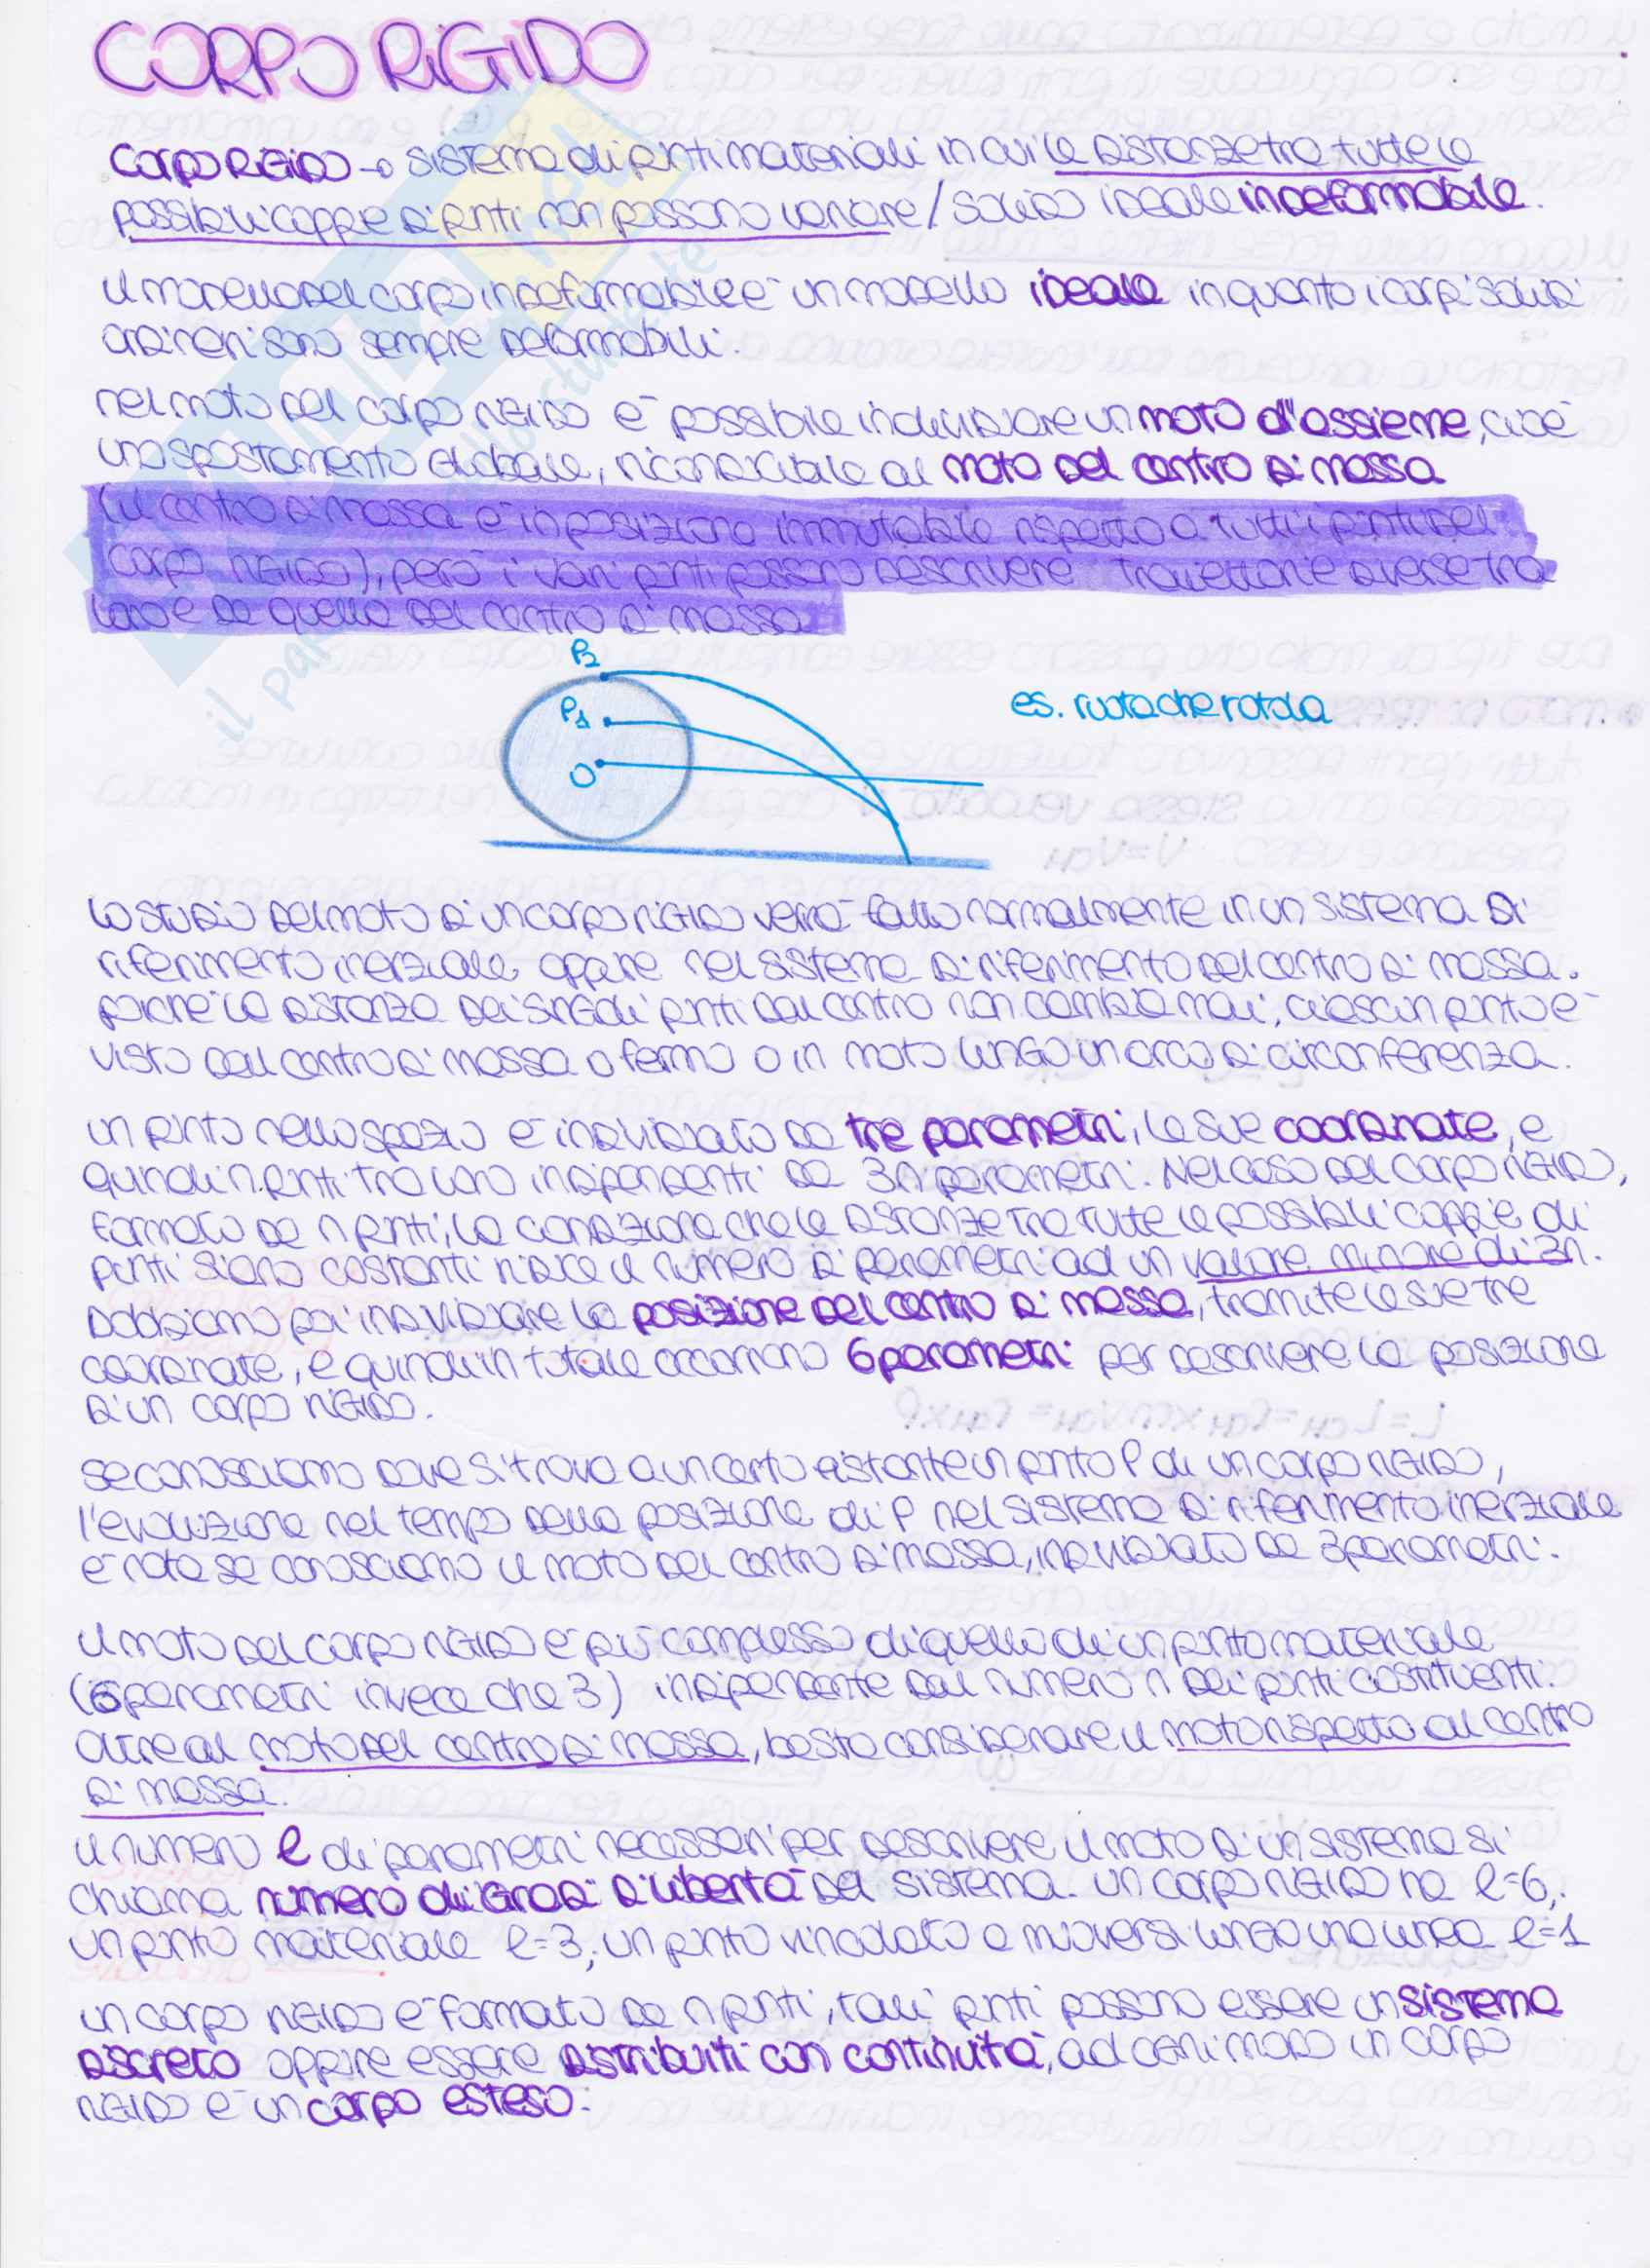 CORPO RIGIDO
CORPO RIGIDO → sistema di punti materiali in cui le distanze tra tutte le
possibili coppie di punti non possono variare / solido ideale indeformabile.
il modello del corpo indeformabile è un modello ideale in quanto i corpi solidi
ordinari sono sempre deformabili.
nel moto del corpo rigido è possibile individuare un moto d'assieme, cioè
uno spostamento globale, riconducibile al moto del centro di massa
(il centro di massa è in posizione immutabile rispetto a tutti i punti del
corpo rigido), però i vari punti possono descrivere traiettorie diverse tra
loro e da quella del centro di massa
P2
P1
O
es. ruota che rotola
lo studio del moto di un corpo rigido verrà fatto normalmente in un sistema di
riferimento inerziale oppure nel sistema di riferimento del centro di massa.
poiché la distanza dei singoli punti dal centro non cambia mai, ciascun punto è
visto dal centro di massa o fermo o in moto lungo un arco di circonferenza.
un punto nello spazio è individuato da tre parametri, le sue coordinate, e
quindi n punti tra loro indipendenti da 3n parametri. Nel caso del corpo rigido,
formato da n punti, la condizione che le distanze tra tutte le possibili coppie di
punti siano costanti riduce il numero di parametri ad un valore minore di 3n.
dobbiamo poi individuare la posizione del centro di massa, tramite le sue tre
coordinate, e quindi in totale occorrono 6 parametri per descrivere la posizione
di un corpo rigido.
se conosciamo dove si trova a un certo istante un punto P di un corpo rigido,
l'evoluzione nel tempo della posizione di P nel sistema di riferimento inerziale
è nota se conosciamo il moto del centro di massa, individuato da 3 parametri.
il moto del corpo rigido è più complesso di quello di un punto materiale
(6 parametri invece che 3) indipendente dal numero n dei punti costituenti.
oltre al moto del centro di massa, basta considerare il moto rispetto al centro
di massa.
il numero l di parametri necessari per descrivere il moto di un sistema si
chiama numero di gradi di libertà del sistema. un corpo rigido ha l=6,
un punto materiale l=3, un punto vincolato a muoversi lungo una linea l=1
un corpo rigido è formato da n punti, tali punti possono essere un sistema
discreto oppure essere distribuiti con continuità, ad ogni modo un corpo
rigido è un corpo esteso.